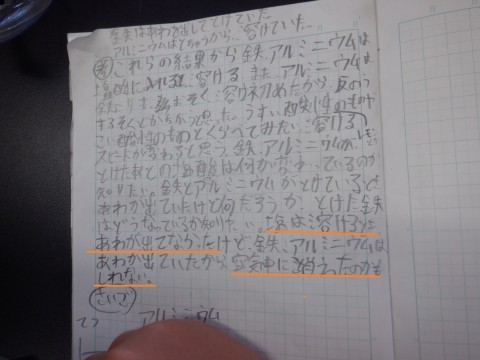 鉄はあわを出してとけていた
アルミニウムはとちゅうから、溶けていた。
考 これらの結果から鉄、アルミニウムは
塩酸に入れると溶ける。また、アルミニウムは
鉄よりも おそく溶け初めたから、反のう
するそくどがちがうと思った。うすい酸性のものや
こい酸性のものとくらべてみたい。溶ける
スピードが変わると思う。鉄、アルミニウムが
とけたあとの塩酸は何か変わっているのか
知りたい。鉄とアルミニウムがとけているとき
あわが出ていたけど何だろうか、とけた鉄
はどうなっているか知りたい。塩は溶けるとき
あわが出てなかったけど、鉄、アルミニウムは
あわが出ていたから、空気中に消えったのかも
しれない。
さいご
てつ アルミニウム